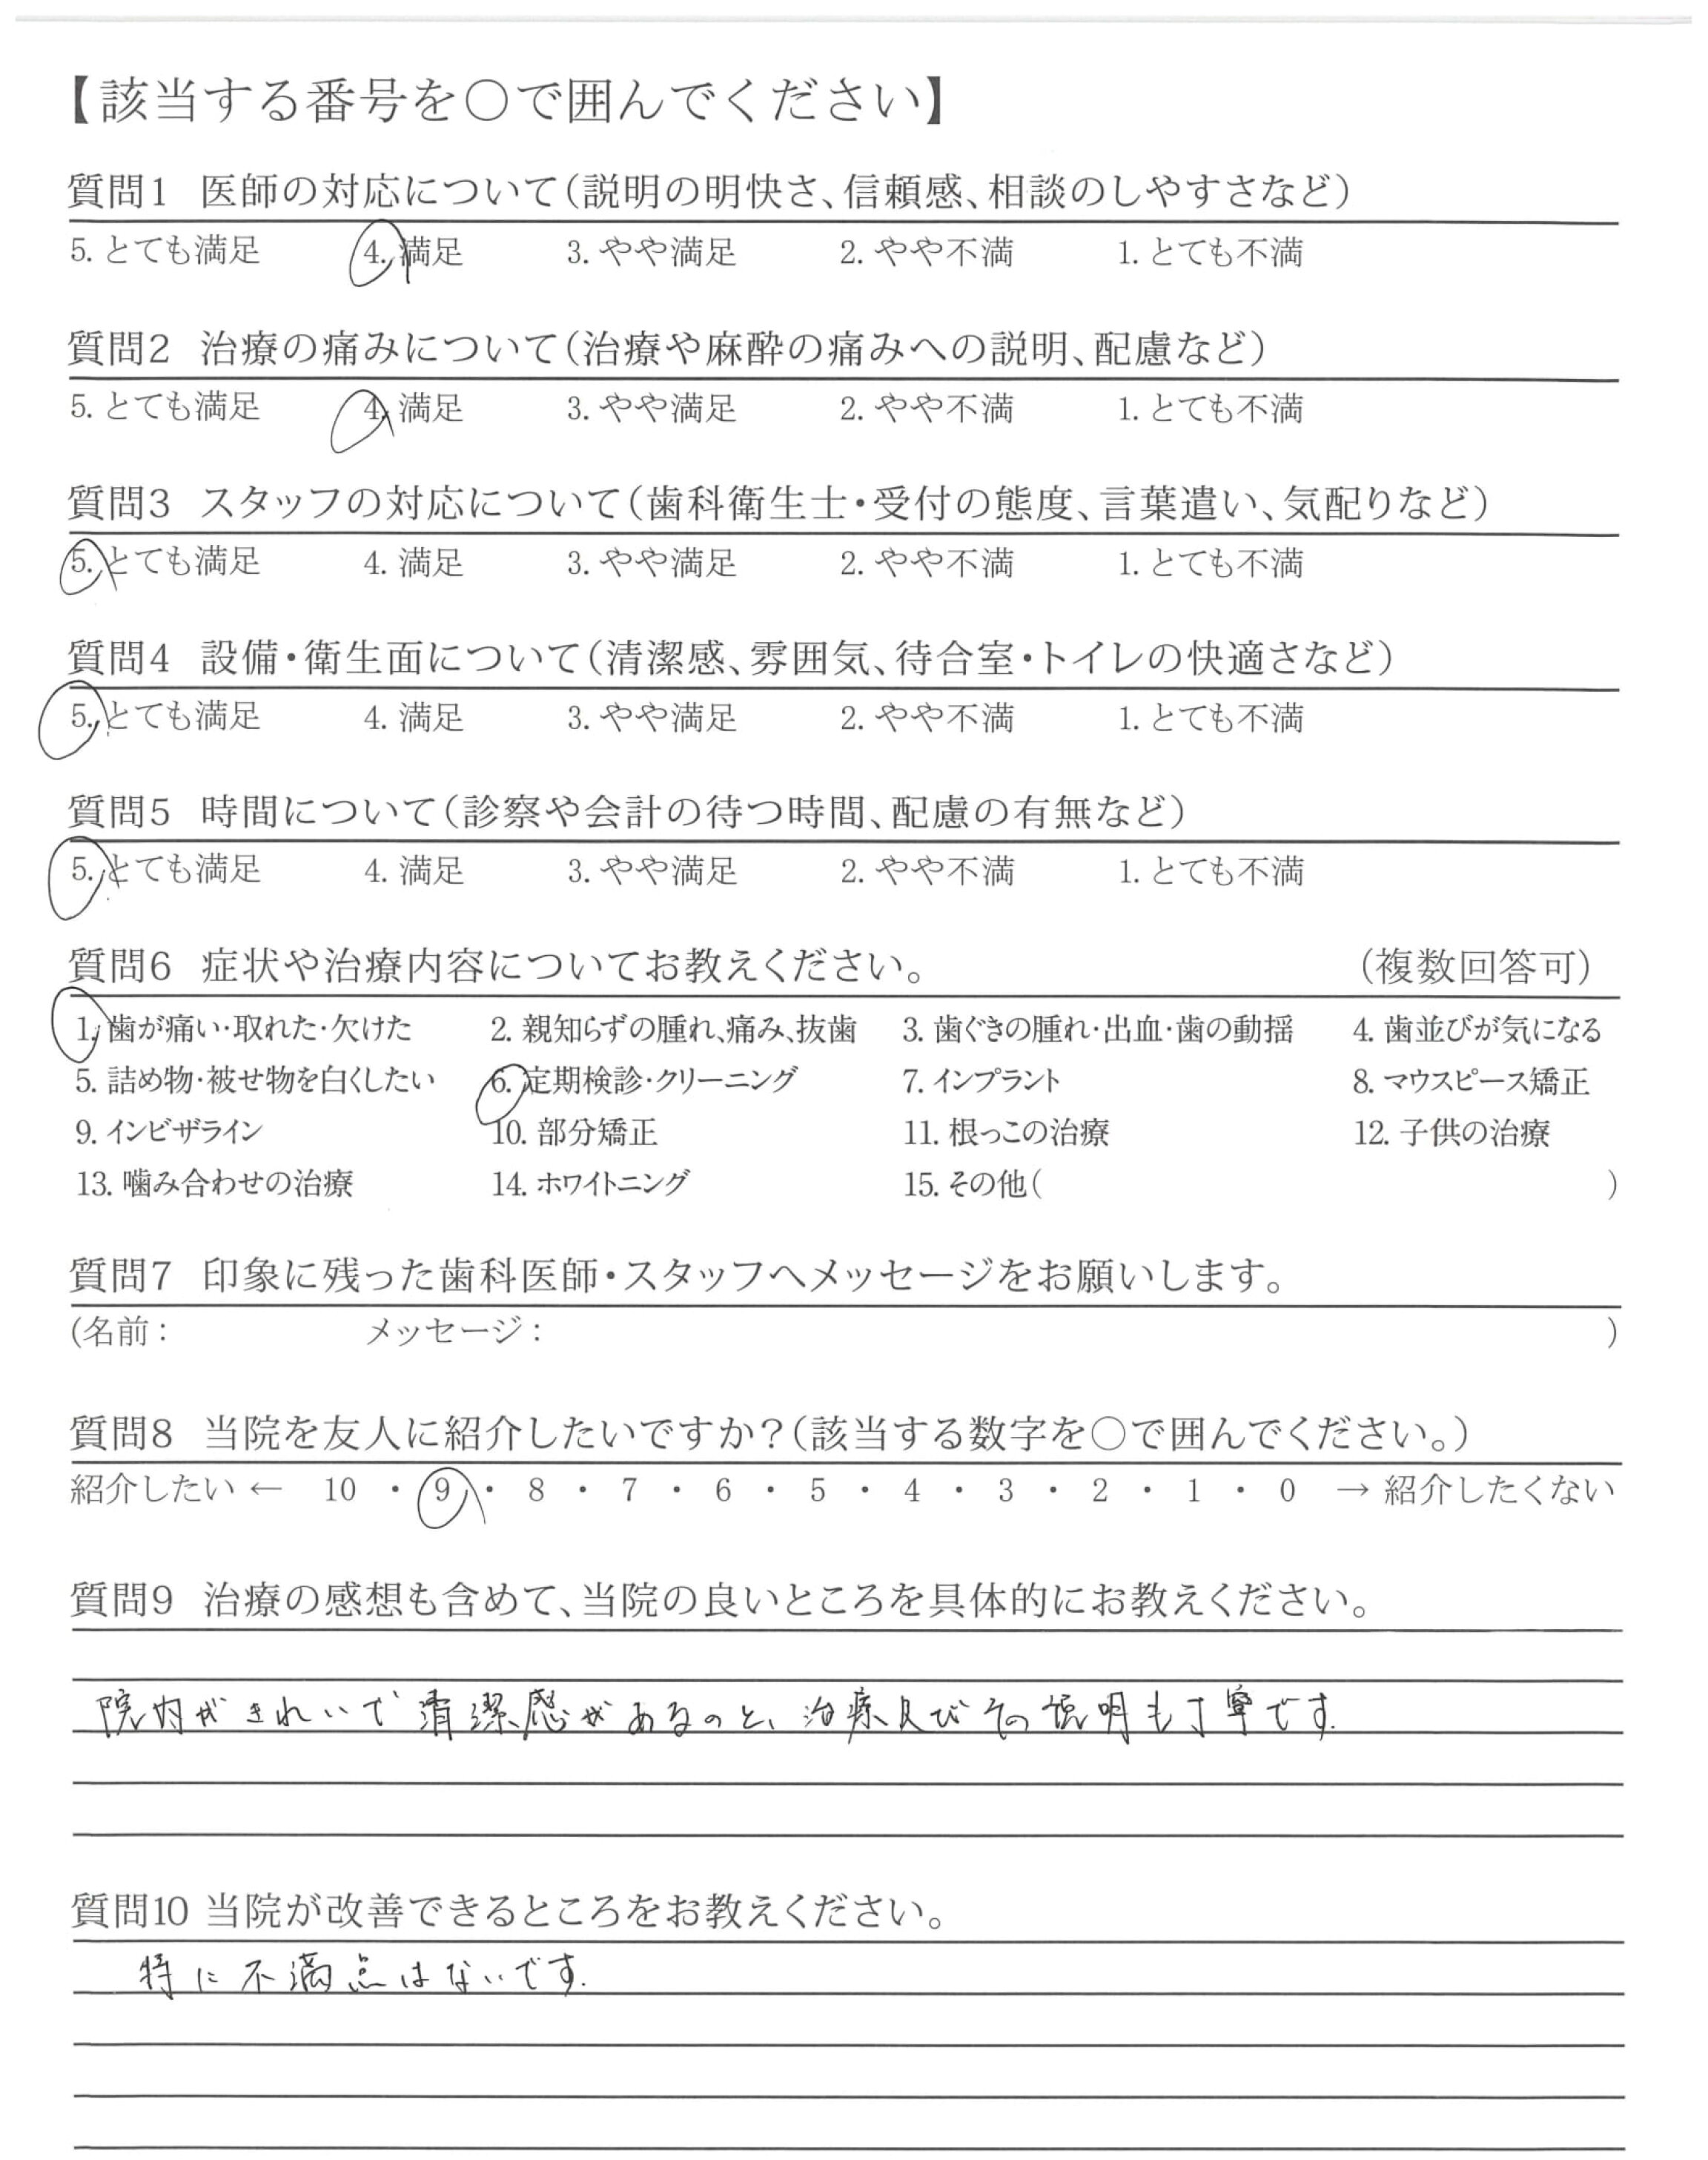 【該当する番号を〇で囲んでください】
質問1 医師の対応について（説明の明快さ、信頼感、相談のしやすさなど）
5. とても満足 4. 満足 3. やや満足 2. やや不満 1. とても不満
質問2 治療の痛みについて（治療や麻酔の痛みへの説明、配慮など）
5. とても満足 4. 満足 3. やや満足 2. やや不満 1. とても不満
質問3 スタッフの対応について（歯科衛生士・受付の態度、言葉遣い、気配りなど）
5. とても満足 4. 満足 3. やや満足 2. やや不満 1. とても不満
質問4 設備・衛生面について（清潔感、雰囲気、待合室・トイレの快適さなど）
5. とても満足 4. 満足 3. やや満足 2. やや不満 1. とても不満
質問5 時間について（診察や会計の待つ時間、配慮の有無など）
5. とても満足 4. 満足 3. やや満足 2. やや不満 1. とても不満
質問6 症状や治療内容についてお教えください。 （複数回答可）
1. 歯が痛い・取れた・欠けた 2. 親知らずの腫れ、痛み、抜歯 3. 歯ぐきの腫れ・出血・歯の動揺 4. 歯並びが気になる
5. 詰め物・被せ物を白くしたい 6. 定期検診・クリーニング 7. インプラント 8. マウスピース矯正
9. インビザライン 10. 部分矯正 11. 根っこの治療 12. 子供の治療
13. 噛み合わせの治療 14. ホワイトニング 15. その他（ ）
質問7 印象に残った歯科医師・スタッフへメッセージをお願いします。
（名前： メッセージ： ）
質問8 当院を友人に紹介したいですか？（該当する数字を〇で囲んでください。）
紹介したい ← 10 ・ 9 ・ 8 ・ 7 ・ 6 ・ 5 ・ 4 ・ 3 ・ 2 ・ 1 ・ 0 → 紹介したくない
質問9 治療の感想も含めて、当院の良いところを具体的にお教えください。
院内がきれいで清潔感があるのと、治療及びその説明も丁寧です.
質問10 当院が改善できるところをお教えください。
特に不満点はないです.